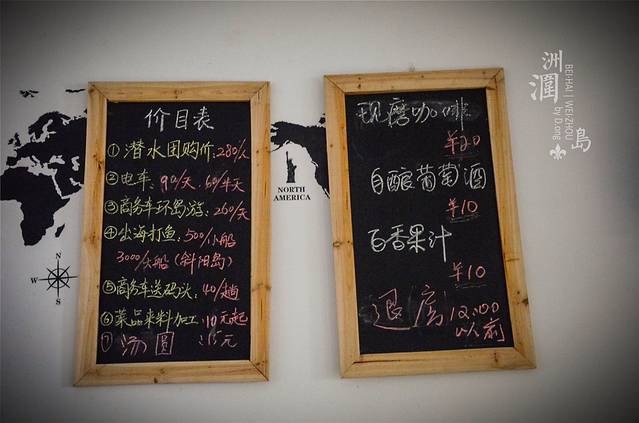 价目表
①潜水团购价:280/人
②电车:90/天,60/半天
③商务车环岛游:260/天
④出海打鱼:500/小船
3000/大船(斜阳岛)
⑤商务车送码头:40/趟
⑥菜品来料加工:10元起
⑦汤圆:15元
N
W
E
S
NORTH
AMERICA
现磨咖啡
¥20
自酿葡萄酒
¥10
百香果汁
¥10
退房12:00
以前
涠洲岛
BEI-HAI | WEI-ZHOU
by D.ong